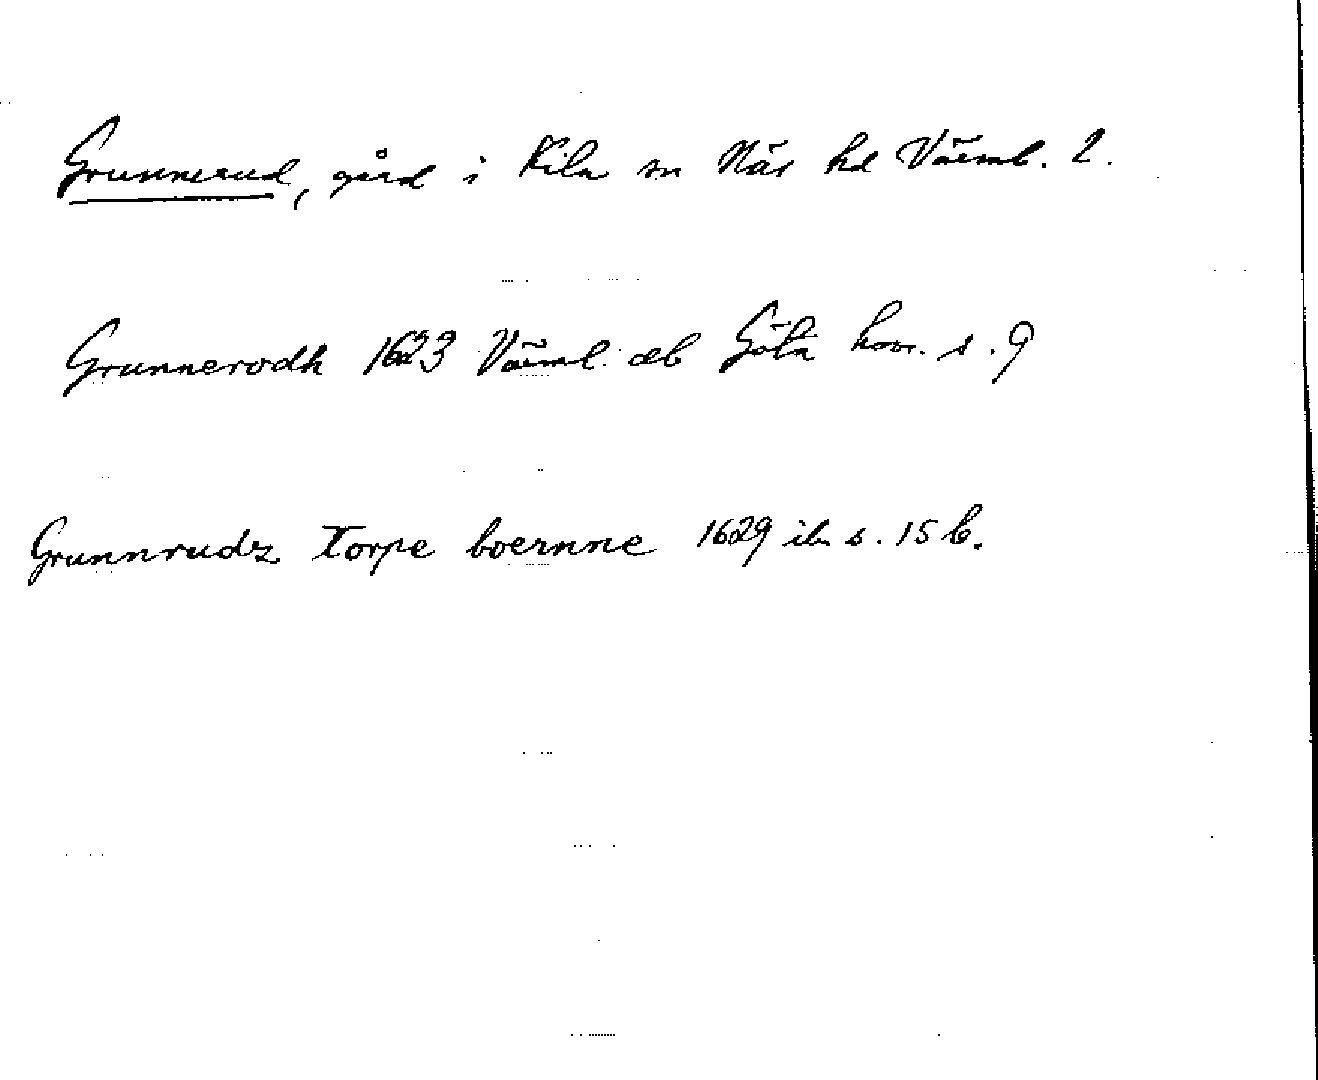 Grunnerud, gård i Kila sn Näs hd Värml. l.
Grunnerodh 1623 Värml. db Göta hovr. s. 9
Grunnrudz Torpe boernne 1629 ib s. 15 b.